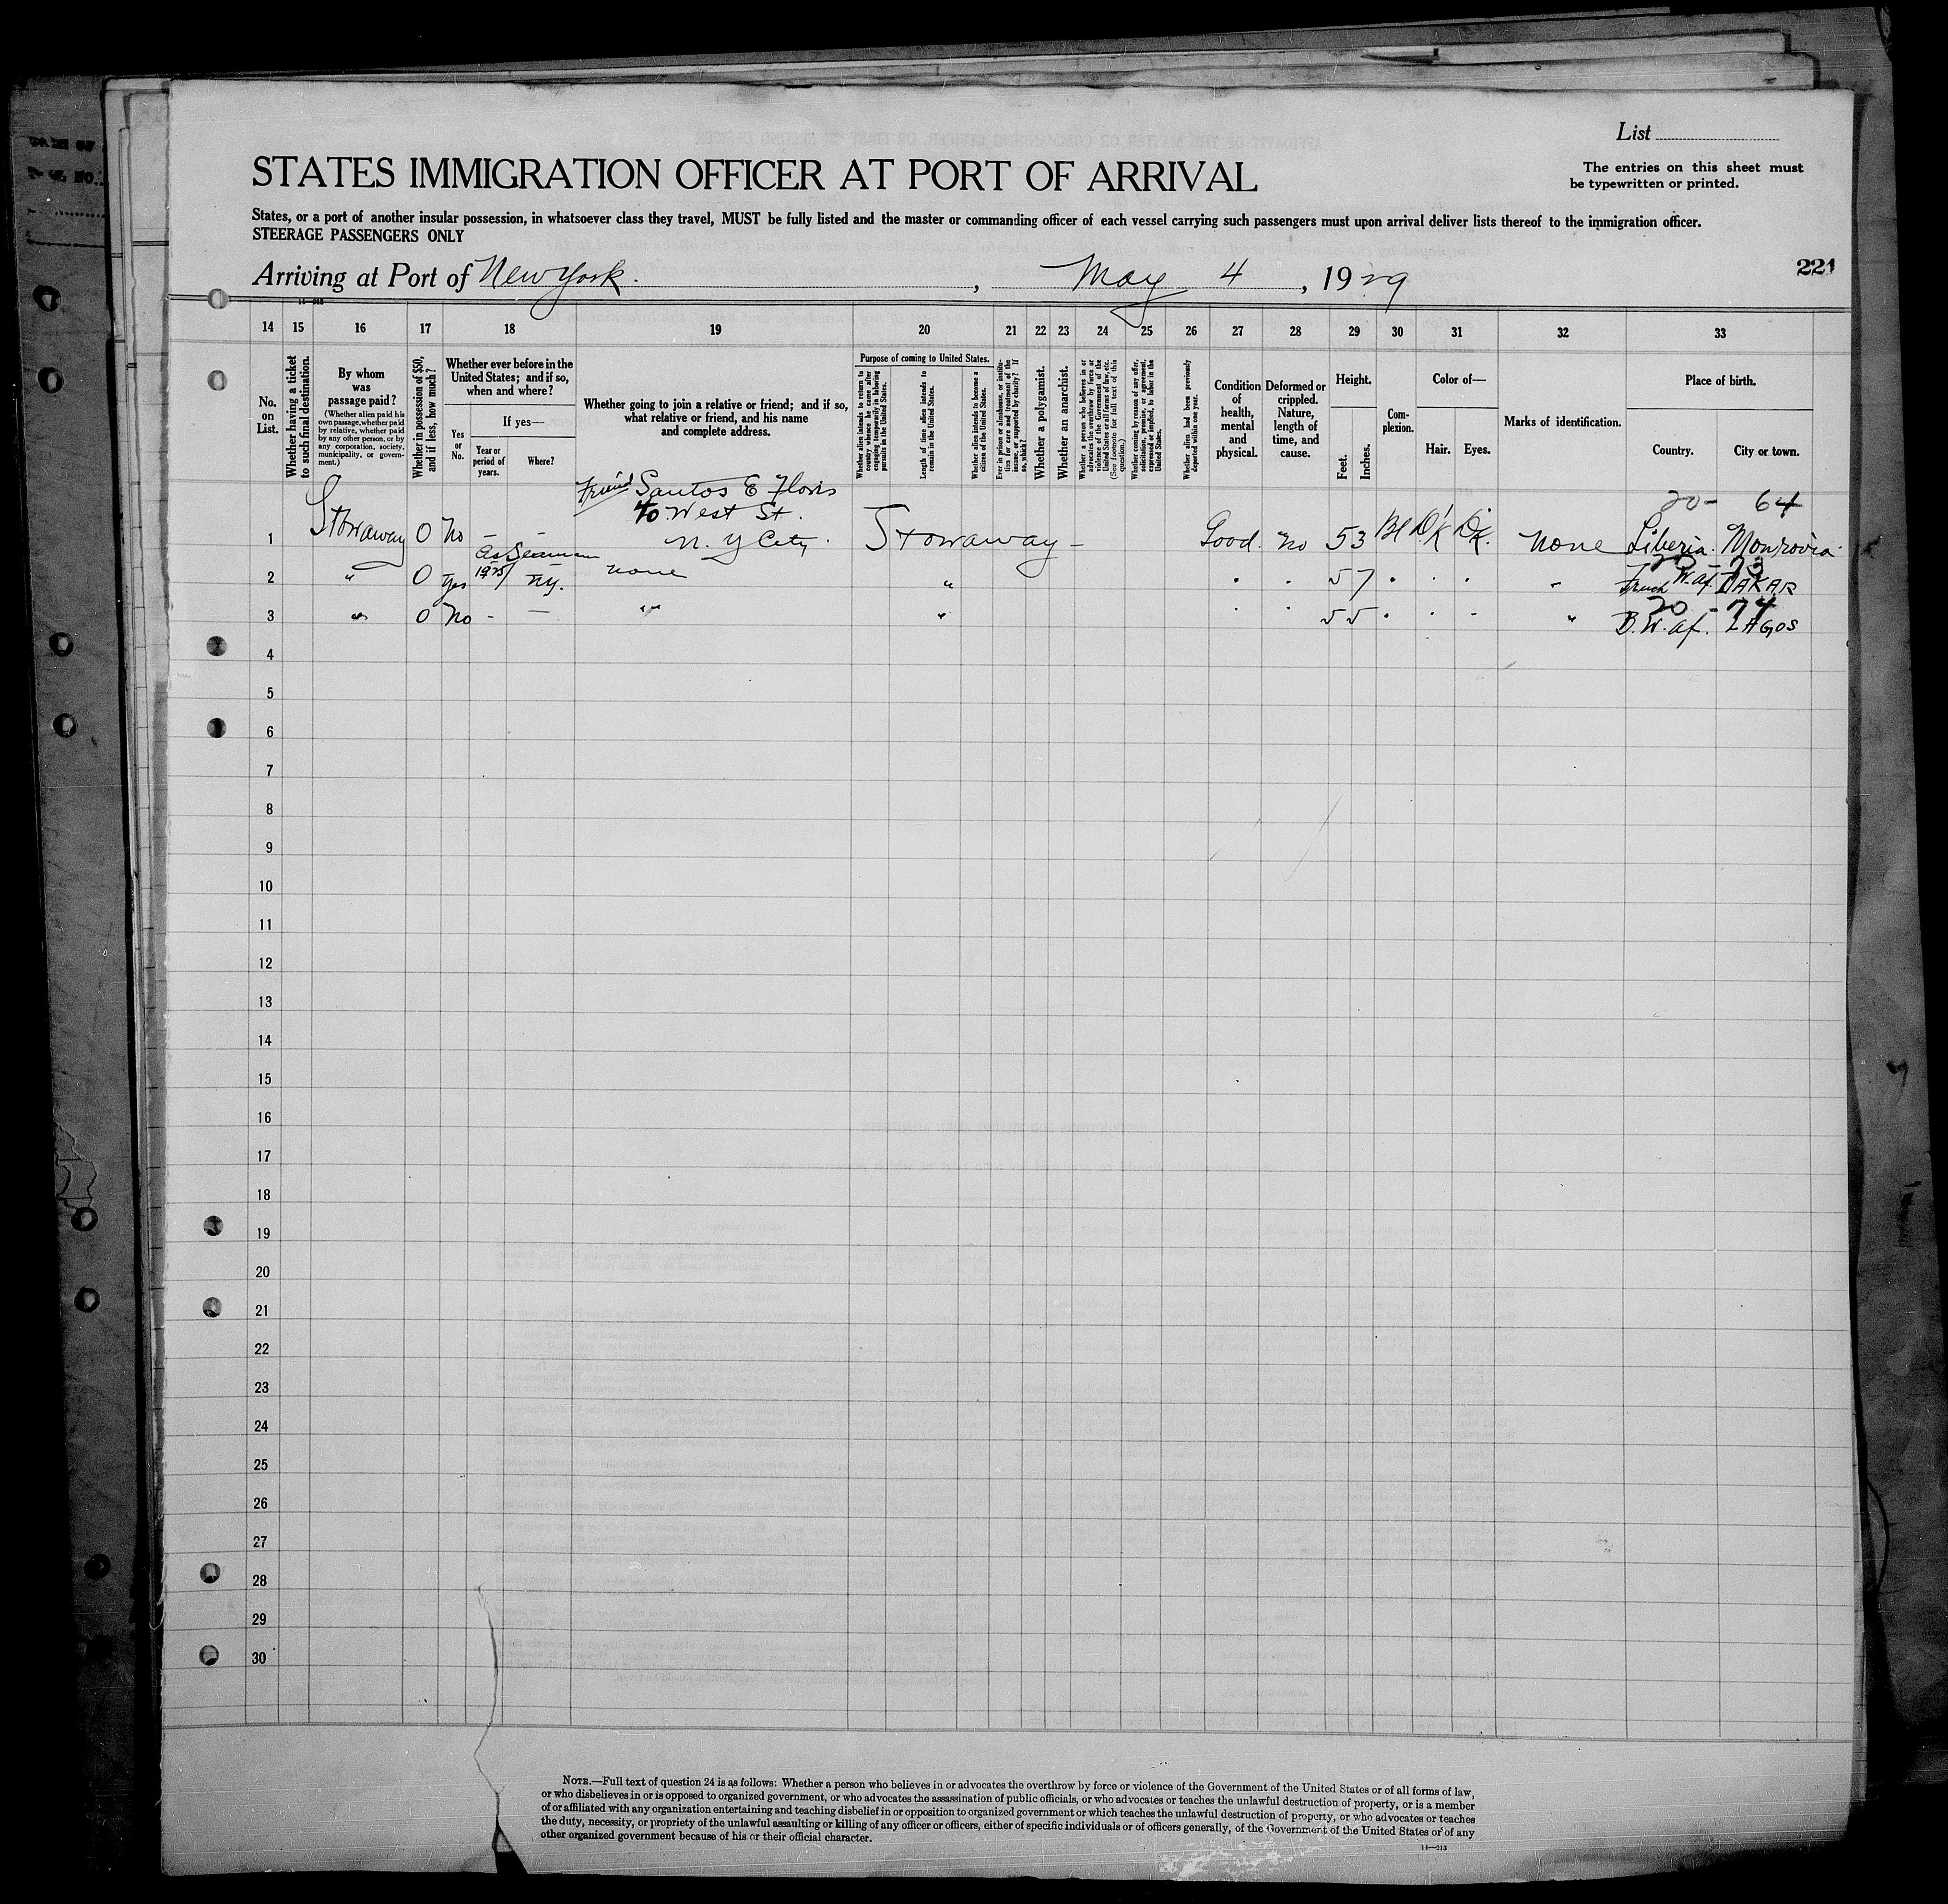 List
The entries on this sheet must
be typewritten or printed.
STATES IMMIGRATION OFFICER AT PORT OF ARRIVAL
States, or a port of another insular possession, in whatsoever class they travel, MUST be fully listed and the master or commanding officer of each vessel carrying such passengers must upon arrival deliver lists thereof to the immigration officer.
STEERAGE PASSENGERS ONLY
Arriving at Port of New York. , May 4 , 1929
221
14 15 16 17 18 19 20 21 22 23 24 25 26 27 28 29 30 31 32 33
No. on List.
Whether having a ticket to such final destination.
By whom was passage paid?
(Whether alien paid his own passage, whether paid by relative, whether paid by any other person, or by any corporation, society, municipality, or government.)
Whether in possession of $50, and if less, how much?
Whether ever before in the United States; and if so, when and where?
Yes or No.
If yes—
Year or period of years.
Where?
Whether going to join a relative or friend; and if so, what relative or friend, and his name and complete address.
Purpose of coming to United States.
Whether alien intends to return to country whence he came after engaging temporarily in laboring pursuits in the United States.
Length of time alien intends to remain in the United States.
Whether alien intends to become a citizen of the United States.
Ever in prison or almshouse, or institution for care and treatment of the insane, or supported by charity? If so, which?
Whether a polygamist.
Whether an anarchist.
Whether a person who believes in or advocates the overthrow by force or violence of the Government of the United States or all forms of law, etc. (See footnote for full text of this question.)
Whether coming by reason of any offer, solicitation, promise, or agreement, expressed or implied, to labor in the United States.
Whether alien had been previously deported within one year.
Condition of health, mental and physical.
Deformed or crippled. Nature, length of time, and cause.
Height.
Feet. Inches.
Complexion.
Color of—
Hair. Eyes.
Marks of identification.
Place of birth.
Country. City or town.
Friend Santos E Floris
40 West St.
N. Y City.
20- 64
1 Stowaway 0 No - - Stowaway - Good. no 53 Bl D'k D'k. None Liberia. Monrovia
as Seaman
2 " 0 yes 1925 ny. none " . . 57 . . . " French W. af. DAKAR
3 " 0 No - - " " . . 55 . . . " B. W. af. LAGOS
4
5
6
7
8
9
10
11
12
13
14
15
16
17
18
19
20
21
22
23
24
25
26
27
28
29
30
NOTE.—Full text of question 24 is as follows: Whether a person who believes in or advocates the overthrow by force or violence of the Government of the United States or of all forms of law,
or who disbelieves in or is opposed to organized government, or who advocates the assassination of public officials, or who advocates or teaches the unlawful destruction of property, or is a member
of or affiliated with any organization entertaining and teaching disbelief in or opposition to organized government or which teaches the unlawful destruction of property, or who advocates or teaches
the duty, necessity, or propriety of the unlawful assaulting or killing of any officer or officers, either of specific individuals or of officers generally, of the Government of the United States or of any
other organized government because of his or their official character.
14—213